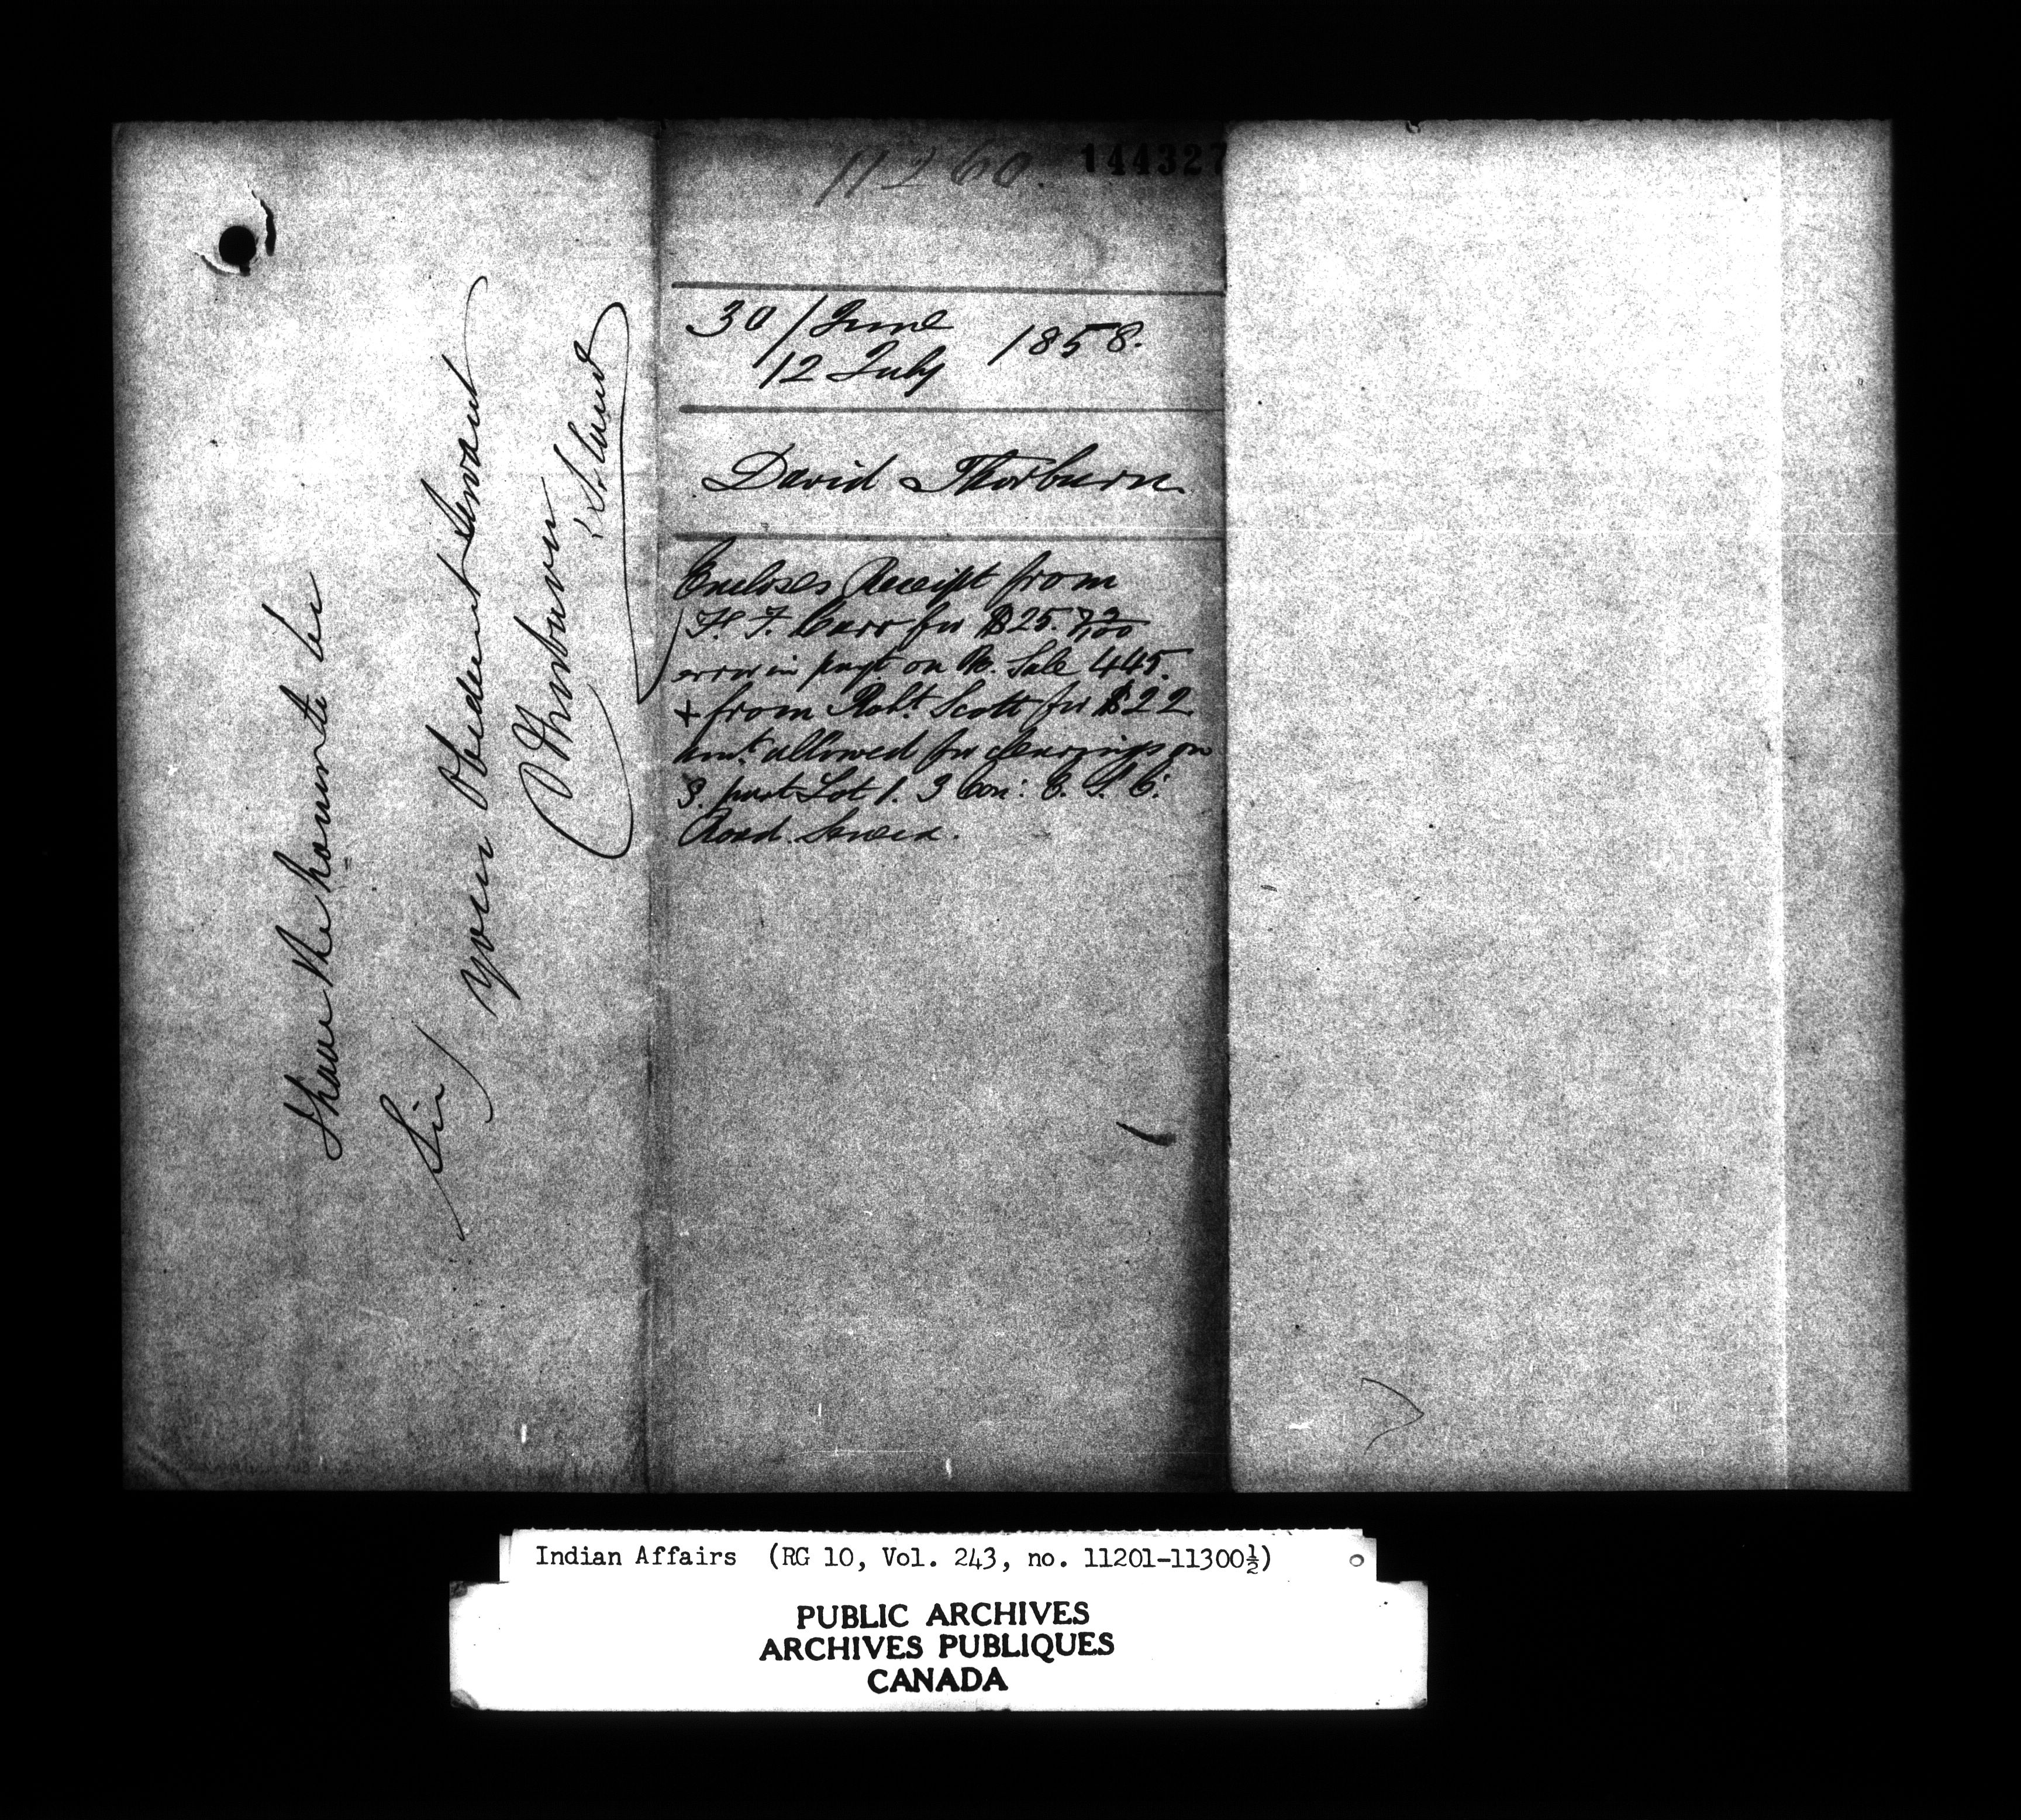 I have the honour to be
Sir
Your Obedient Servant
D Thorburn
11260
144327
30/June
12 July 1858.
David Thorburn
Encloses Receipt from
F. Carr for $25. 72/100
error in payt on Sale 445.
+ from Robt. Scott for $22
amt. allowed for clearings on
S. part Lot 1. 3 Con:
Road. Seneca.
Indian Affairs (RG 10, Vol. 243, no. 11201-11300½)
PUBLIC ARCHIVES
ARCHIVES PUBLIQUES
CANADA